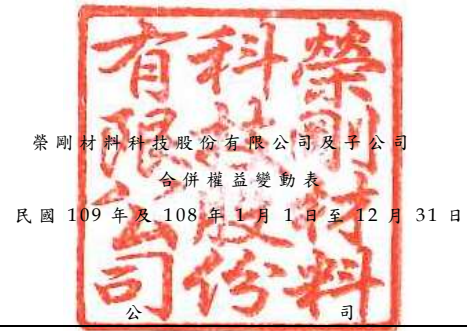 榮剛材料科技股份有限公司
榮剛材料科技股份有限公司及子公司
合併權益變動表
民國 109 年及 108 年 1 月 1 日至 12 月 31 日
公 司